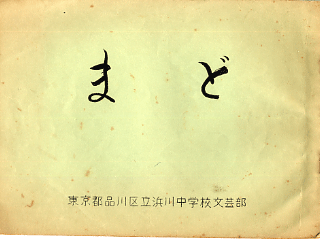 まど
東京都品川区立浜川中学校文芸部